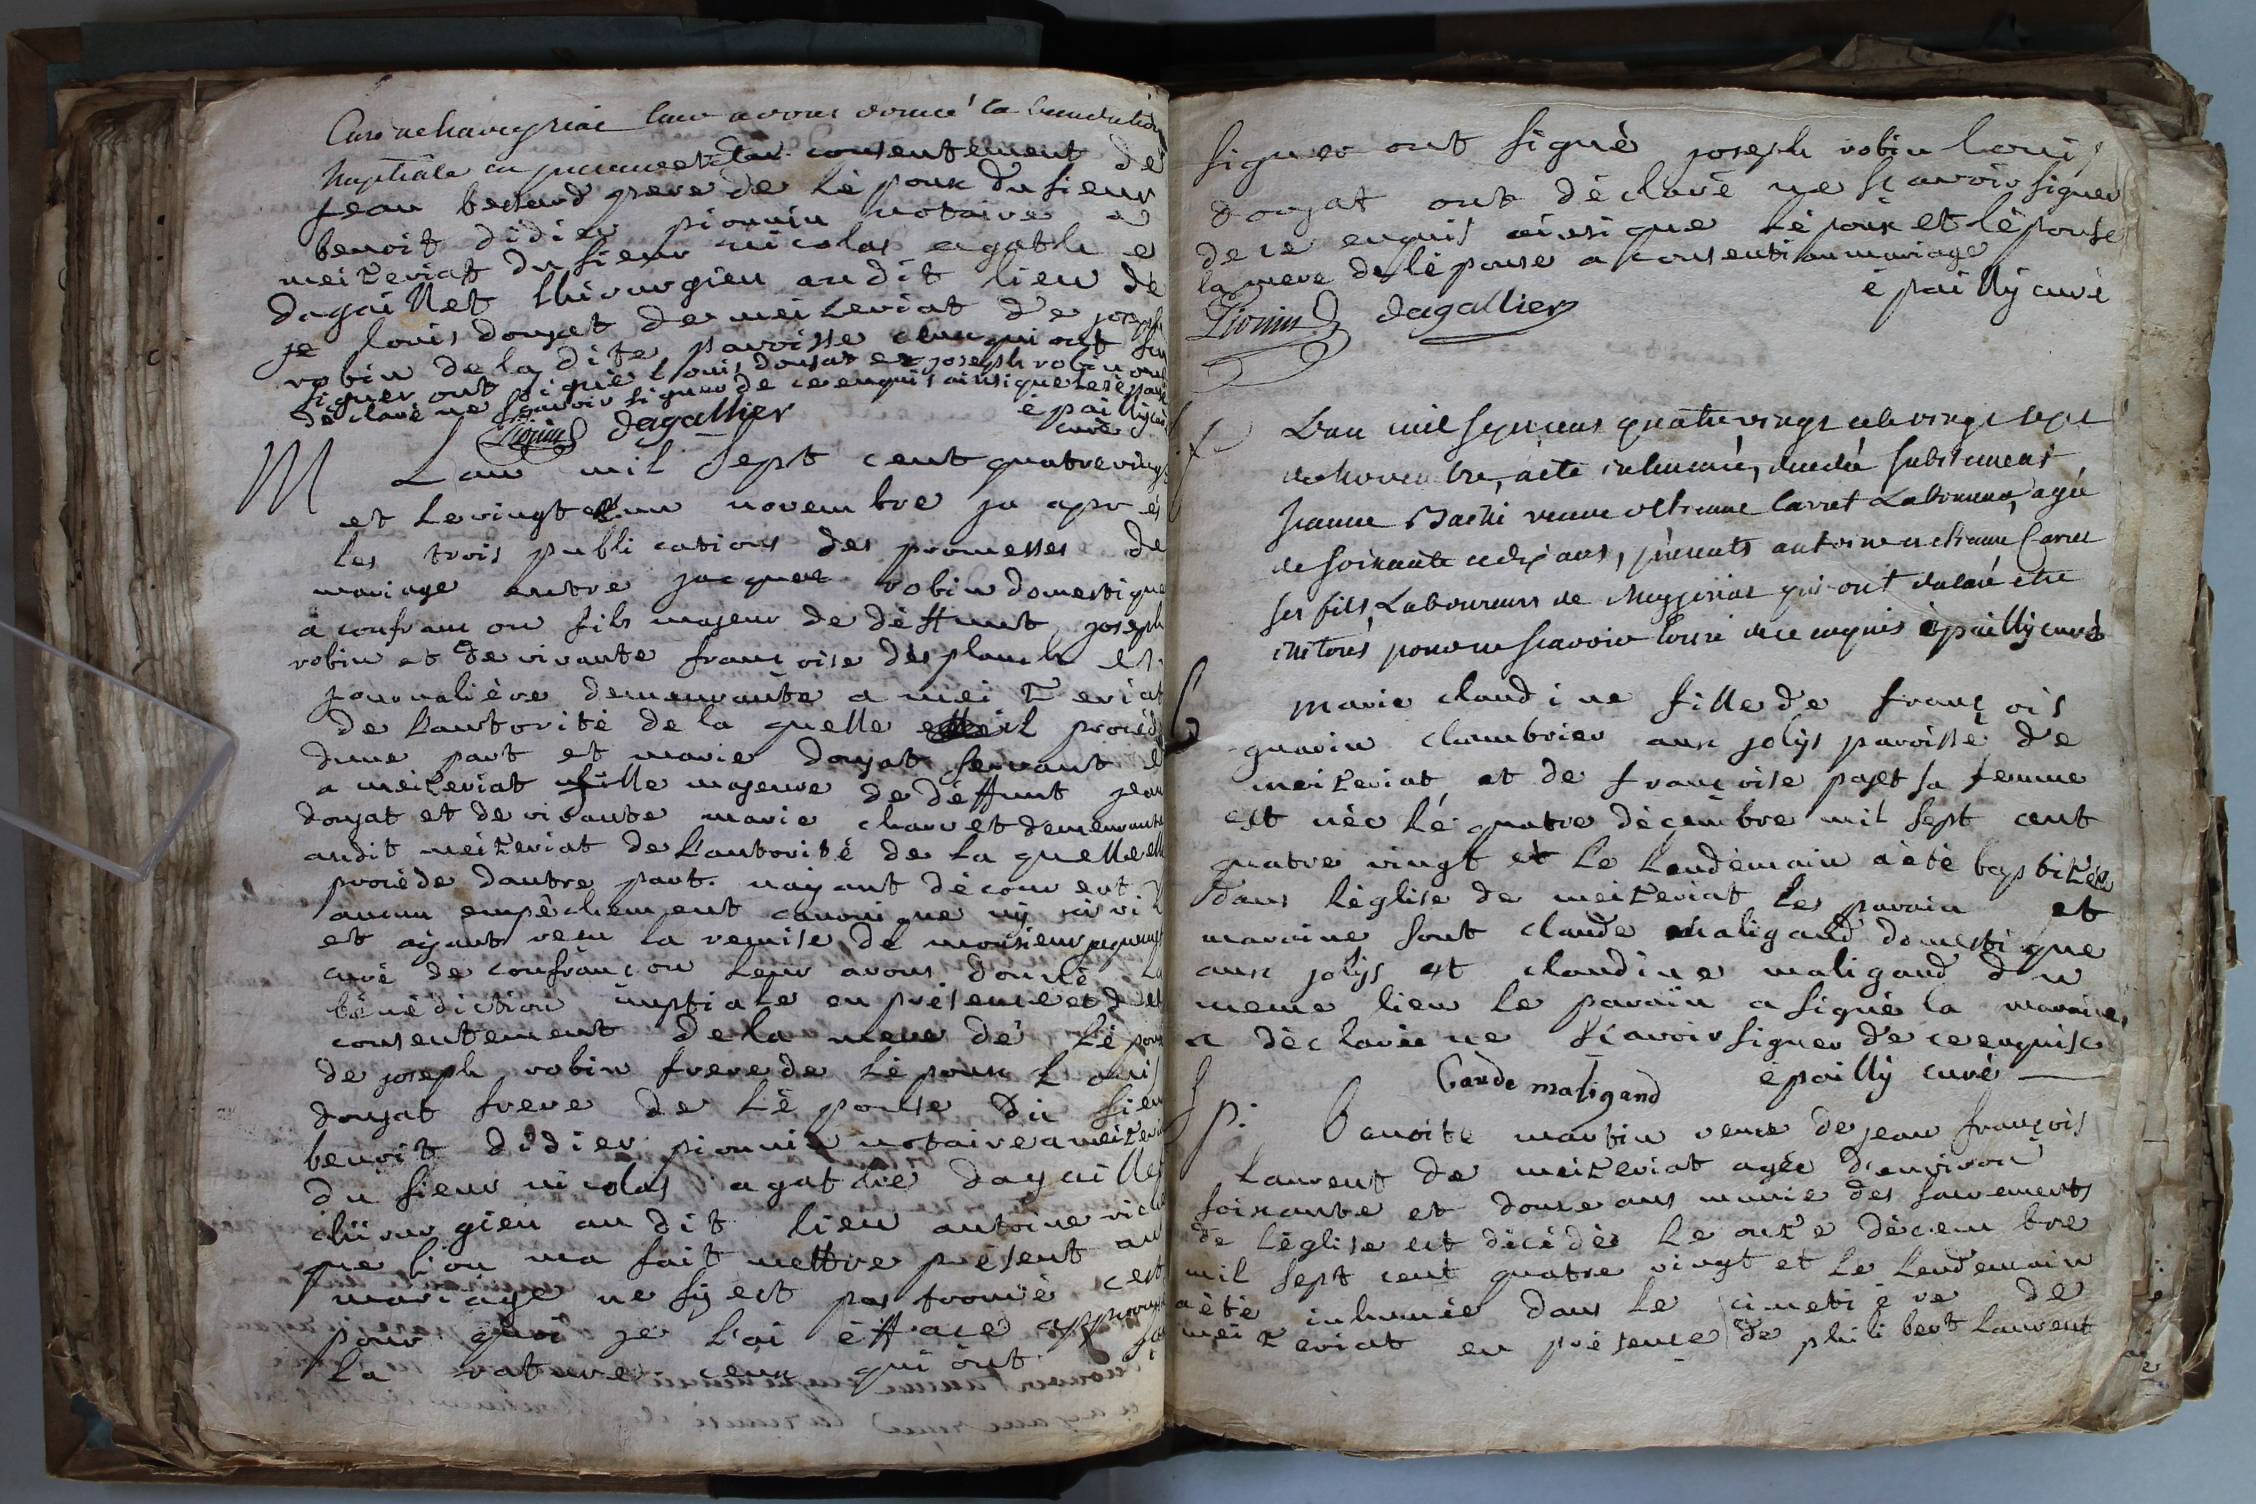 Curé de haveyriat leur avons donné la benediction
Nuptiale en presence et du consentement de
jean bernard pere de lépoux du sieur
benoit didier pionnin notaire a
meizeriat du sieur nicolas agathe
dagaillet chirurgien audit lieu de
je louis doujat de meizeriat de joseph
robin de la dite paroisse ceux qui ont su
signer ont signé louis doujat et joseph robin ont
déclaré ne sçavoir signer de ce enquis ainsi que les époux
Pionnin dagallier épailly curé
M Lan mil sept cent quatrevingt
et le vingt un novembre je après
les trois publications des promesses de
mariage entre jacques robin domestique
a confrançon fils majeur de déffunt joseph
robin et de vivante françoise desplanche
journalière demeurante a meizeriat
de Lautorité de la quelle il procéde
dune part et marie doujat servante
a meizeriat fille majeure de déffunt jean
doujat et de vivante marie charvet demeurante
audit meizeriat de Lautorité de la quelle elle
procéde dautre part. nayant découvert
aucun empêchement canonique ny civil
et ayant veu la remise de monsieur
curé de confrançon leur avons donné La
bénédiction nuptiale en présence et du
consentement de la mere de Lépoux
de joseph robin frere de Lépoux Louis
doujat frere de Lépouse du sieur
benoit didier pionnin notaire a meizeriat
du sieur nicolas agathe dagaillet
chirurgien au dit lieu antoine
que lon ma fait mettre présent au
mariage ne sy est pas trouvé cest
pour quoi je L'ai éffacé approuvant
La rature ceux qui ont sçu
signer ont signé joseph robin Louis
doujat ont déclaré ne sçavoir signer
de ce enquis ainsi que Lépoux et Lépouse
la mere de lépouse a consenti au mariage
épailly curé
Pionnin dagallier
L'an mil sept cens quatre vingt et le vingt sept
de novembre, a été inhumée, decedée subitement
jeanne Bachi veuve d'etienne Carret Laboureur, agée
de soixante et dix ans, présents antoine et etienne Carret
ses fils, Laboureurs de Meyzeriat qui ont declaré être
illitérés, pour ne sçavoir écrire de ce enquis épailly curé
B marie claudine fille de françois
guarin chambrier aux jolys paroisse de
meizeriat, et de françoise pajet sa femme
est née lé quatre décembre mil sept cent
quatre vingt et le lendemain a été baptizée
dans léglise de meizeriat les parain et
maraine sont claude maligand domestique
aux jolys et claudine maligand du
meme lieu le parain a signé la maraine
a déclarée ne sçavoir signer de ce enquise
Claude maligand épailly curé
Sp. Benoite martin veuve de jean françois
Laurent de meizeriat agée d'environ
soixante et douze ans munie des sacrements
de Léglise est décédée le onze décembre
mil sept cent quatre vingt et le lendemain
a été inhumée dans le cimetière de
meizeriat en présence de philibert Laurent